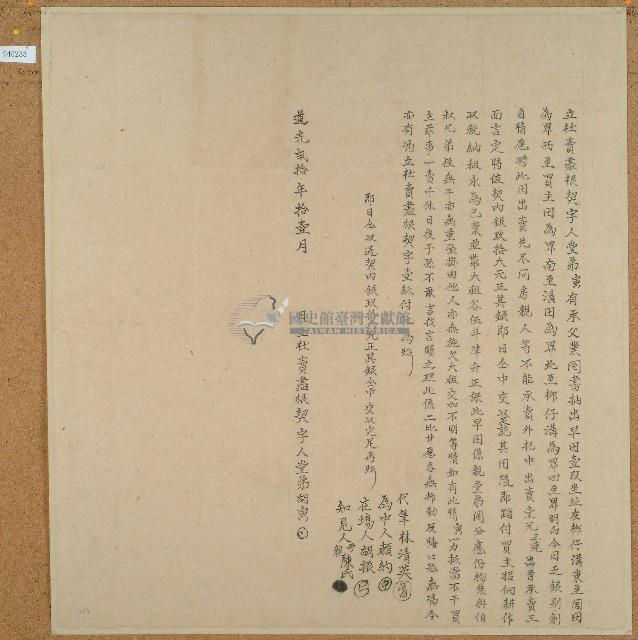 立杜賣盡根契字人堂弟寅有承父業鬮書抽出早田壹段坐址在柳仔溝東至圳田
為界西至買主田為界南至溪田為界北至柳仔溝為界四至界明白今因乏銀別創
自情愿將此田出賣先尽問房親人等不能承賣外托中出賣堂兄 出首承賣三
面言定時值契內銀玖拾六元正其銀即日仝中交收訖其田隨即踏付買主招佃耕作
以稅納租永為己業並帶大租谷伍斗 升正保此早田係親堂弟鬮分應份物業與伯
叔兄弟侄無干亦無重張掛由他人亦無拖欠大租交加不明等情如有此情寅 力抵當不干買
主茲事一賣千休日後子孫不敢言找言贖之理此係二比甘愿各無抑勒反悔口恐無憑今
亦有憑立杜賣盡根契字壹紙付 為照
即日仝收過契內銀玖拾六元正其銀仝中交收完足再照
代筆林清英
為中人賴約
在場人胡振
知見人母親陳氏
道光貳拾年拾壹月 日立杜賣盡根契字人堂弟胡寅
國史館臺灣文獻館
TAIWAN HISTORICA
940233